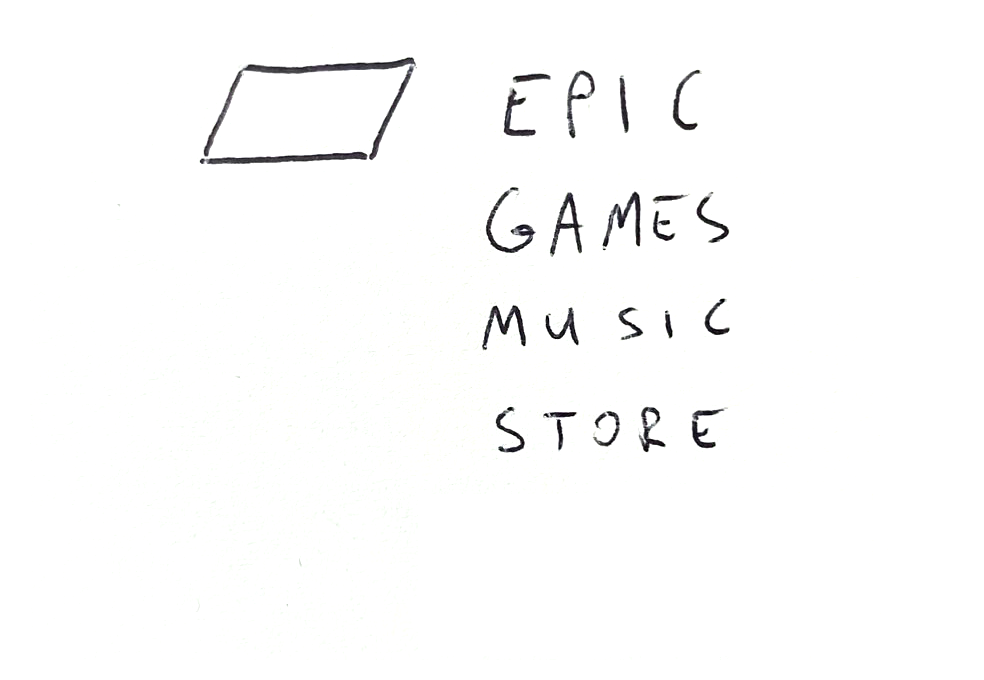 EPIC
GAMES
MUSIC
STORE